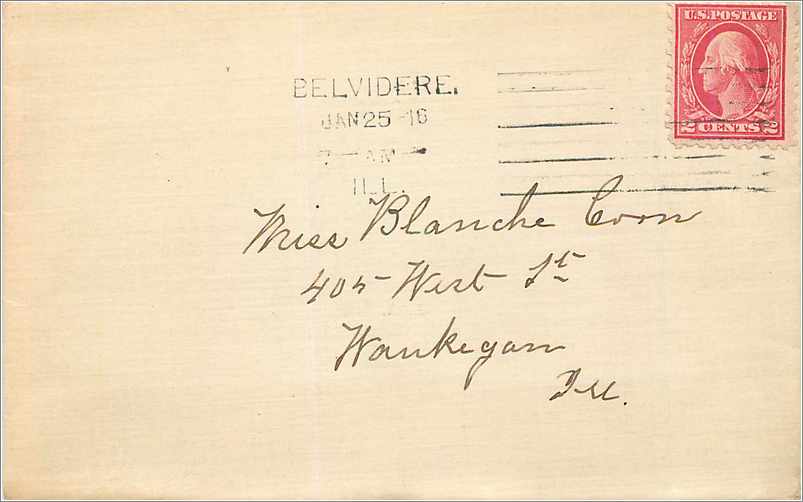 U.S. POSTAGE
2 CENTS 2
BELVIDERE.
JAN 25 -16
7 - AM -
ILL.
Miss Blanche Coon
405 West St
Waukegan
Ill.